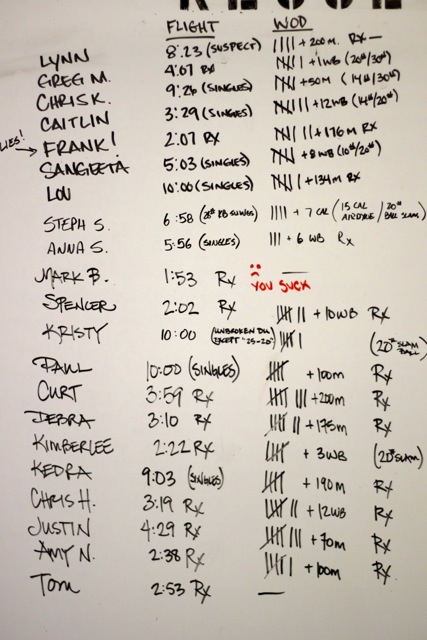 FLIGHT WOD
LYNN 8:23 (SUSPECT) |||| + 200m Rx —
GREG M. 4:07 Rx 𝍸 | + 1WB (20#/30#)
CHRIS K. 9:26 (SINGLES) + 50m (14#/30#)
CAITLIN 3:29 (SINGLES) + 12WB (14#/20#)
LIES! → FRANK! 2:07 Rx || + 176m Rx
SANGEETA 5:03 (SINGLES) + 8WB (10#/20#)
LOU 10:00 (SINGLES) | + 134m Rx
STEPH S. 6:58 |||| + 7 CAL (15 CAL AIRDYNE / 20# BALL SLAMS)
ANNA S. 5:56 (SINGLES) ||| + 6 WB Rx
MARK B. 1:53 Rx — YOU SUCK
SPENCER 2:02 Rx || + 10WB Rx
KRISTY 10:00 (UNBROKEN DU, EXCEPT "25-20") | (20# SLAM BALL)
PAUL 10:00 (SINGLES) + 100m Rx
CURT 3:59 Rx ||| + 200m Rx
DEBRA 3:10 Rx || + 175m Rx
KIMBERLEE 2:22 Rx + 3WB (20# SLAM)
KEDRA 9:03 (SINGLES) + 190m Rx
CHRIS H. 3:19 Rx || + 12WB Rx
JUSTIN 4:29 Rx ||| + 70m Rx
AMY N. 2:38 Rx | + 100m Rx
TOM 2:53 Rx —